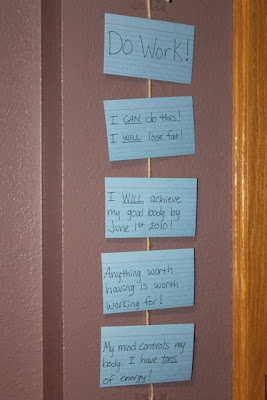 Do Work!
I CAN do this!
I WILL lose fat!
I WILL achieve
my goal body by
June 1st 2010!
Anything worth
having is worth
working for!
My mind controls my
body. I have tons
of energy!